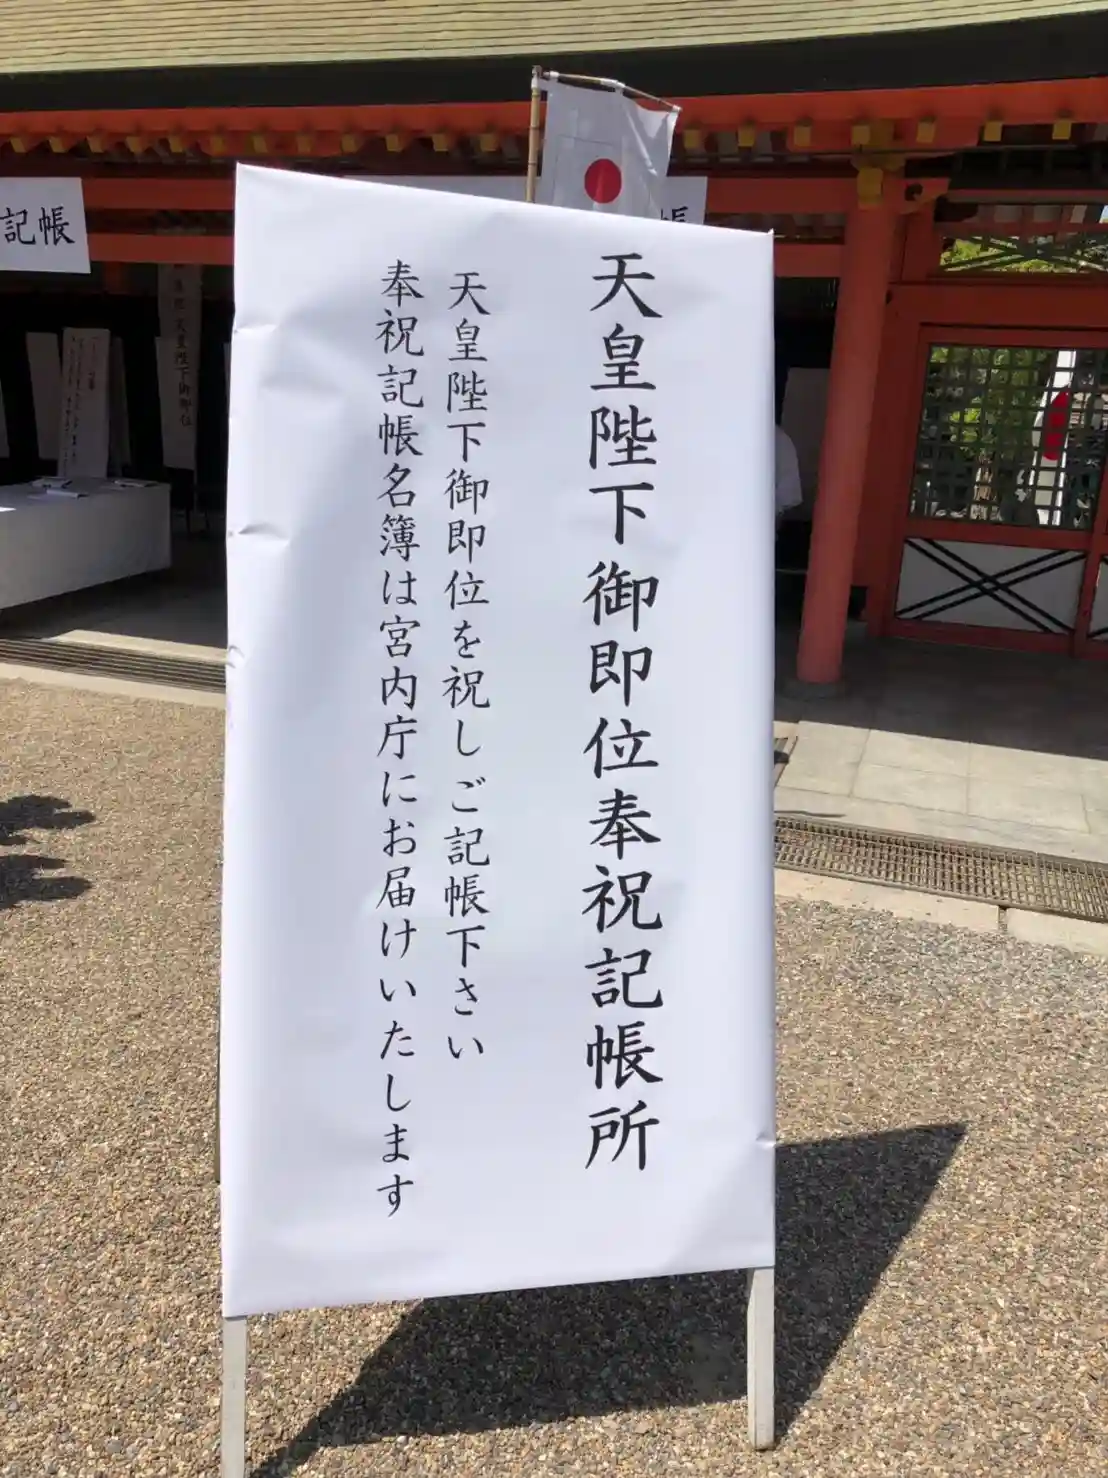 天皇陛下御即位奉祝記帳所
天皇陛下御即位を祝しご記帳下さい
奉祝記帳名簿は宮内庁にお届けいたします
記帳
帳
天皇陛下御即位